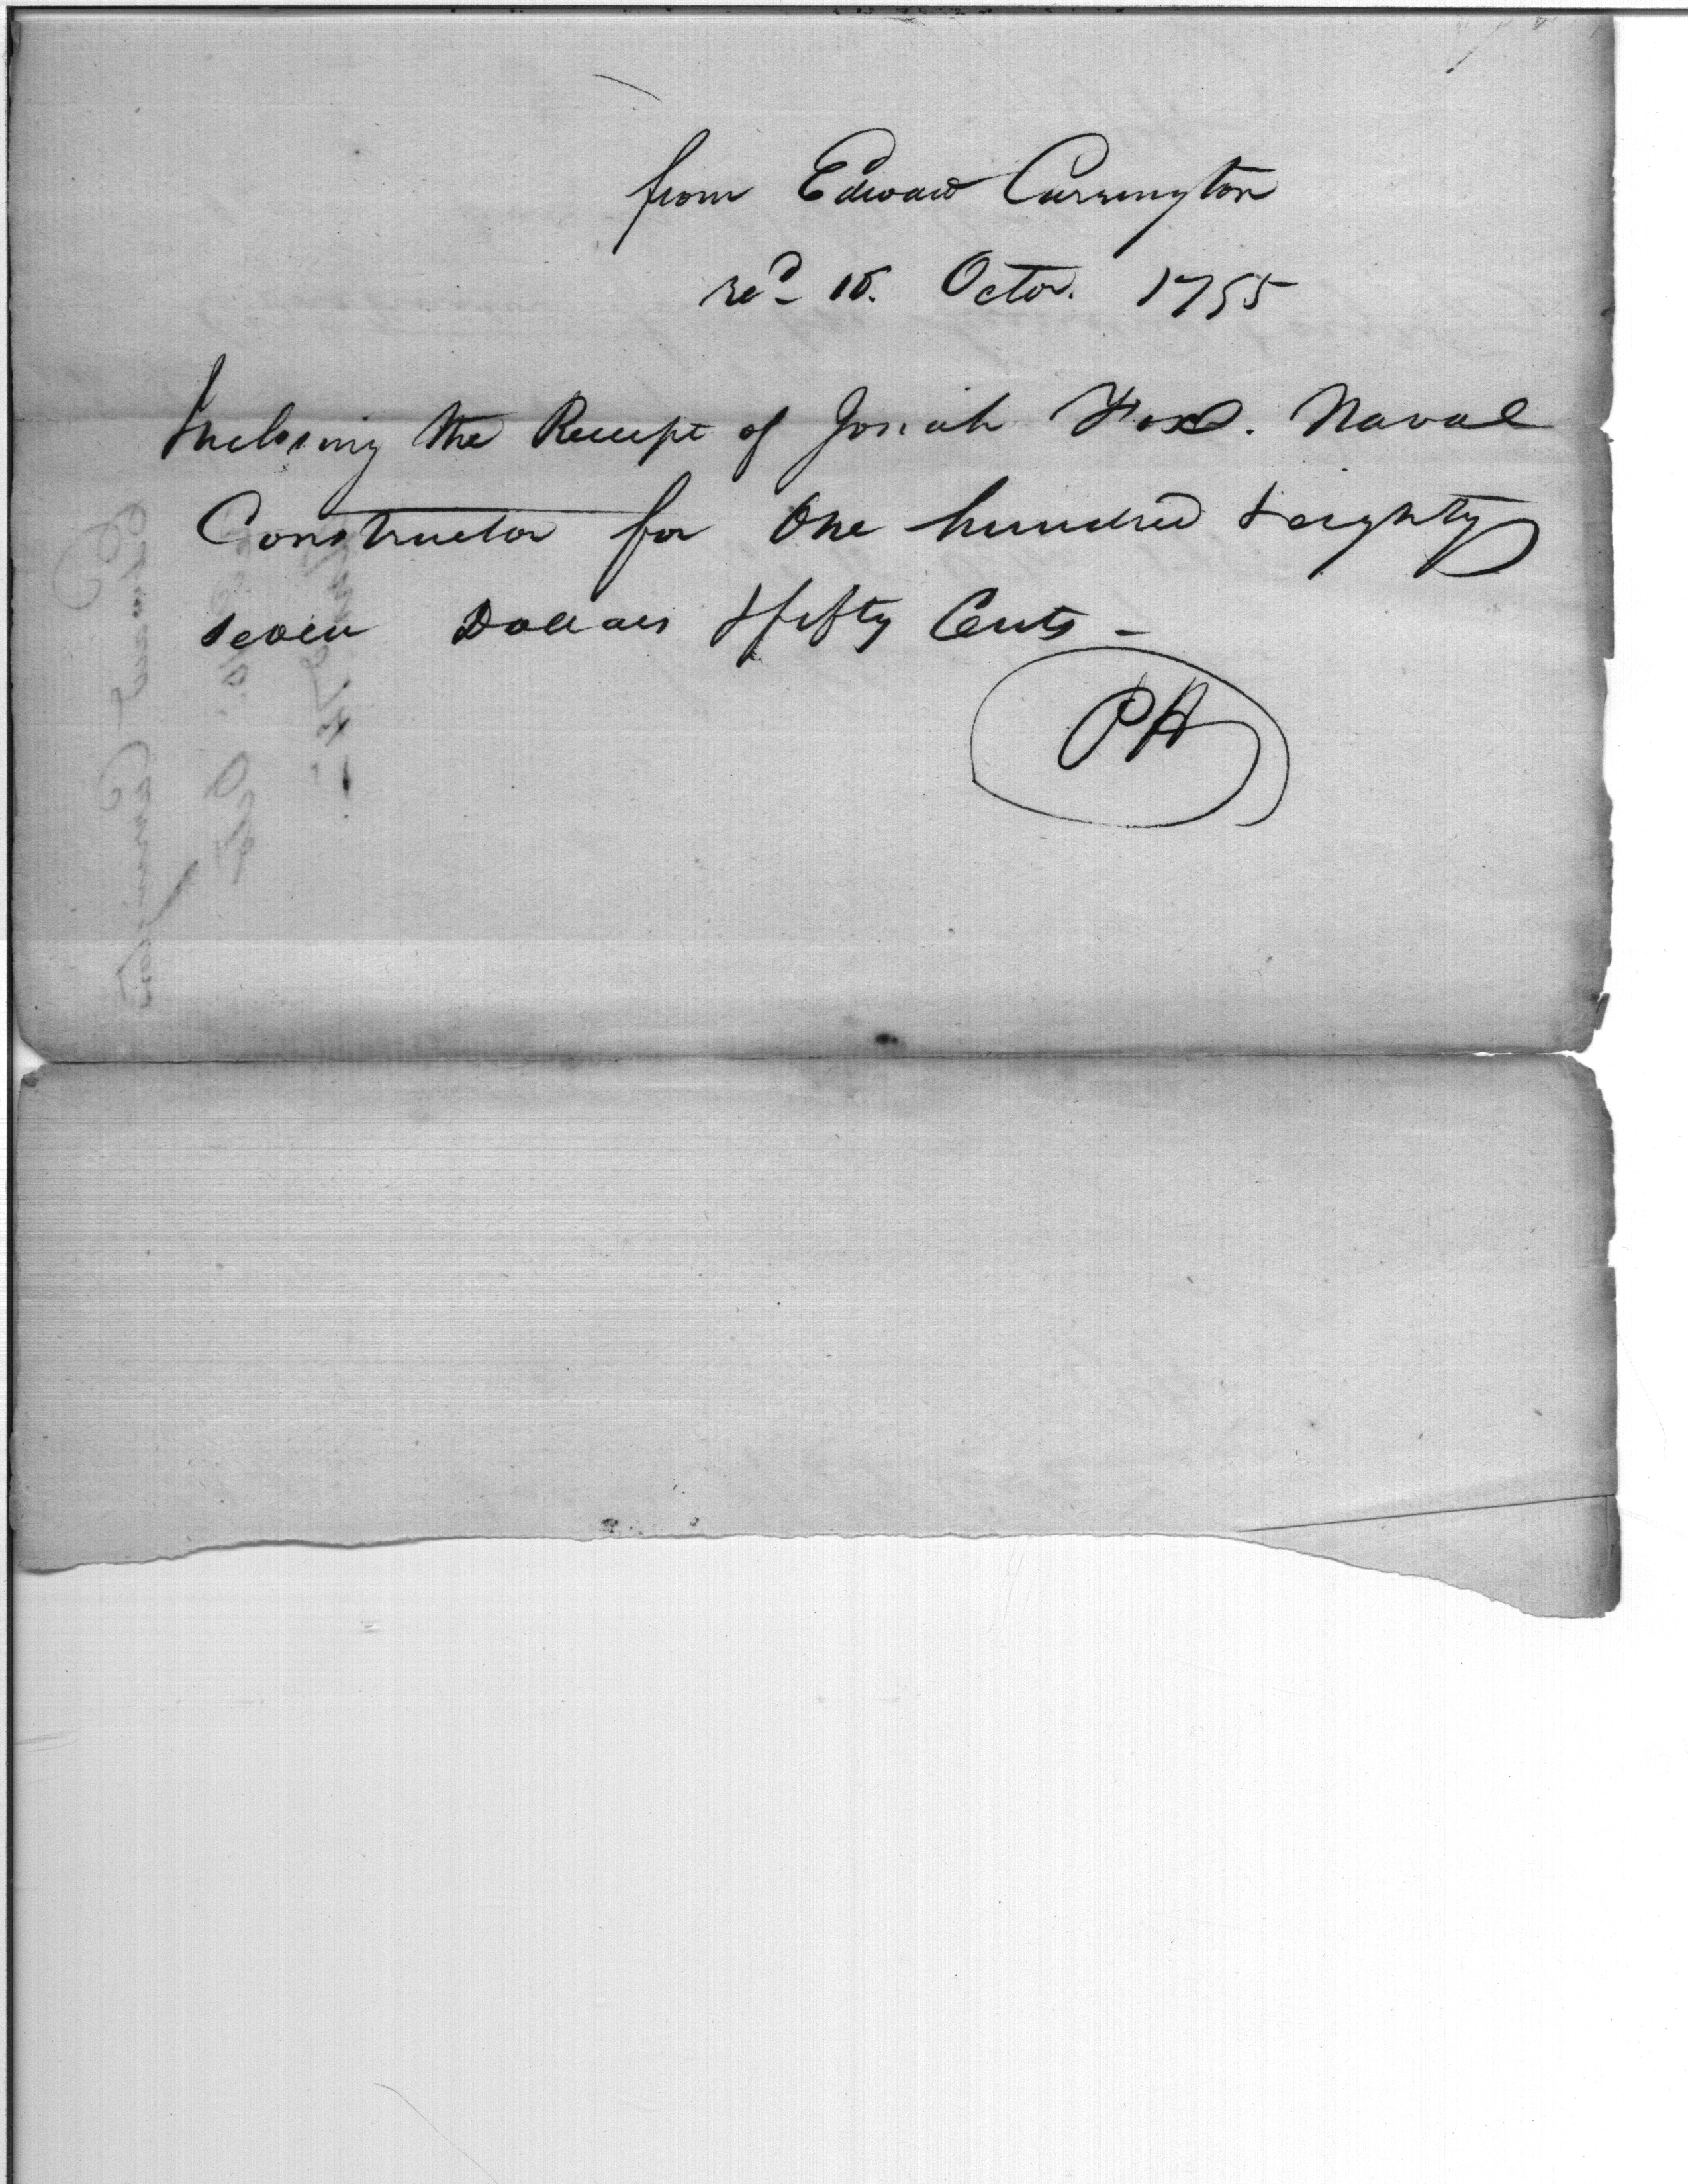 from Edward Carrington
recd 15. Octor. 1795
Inclosing the Receipt of Josiah Fox. Naval
Constructor for One hundred & eighty
seven Dollars & fifty Cents –
PH
Edward Carrington